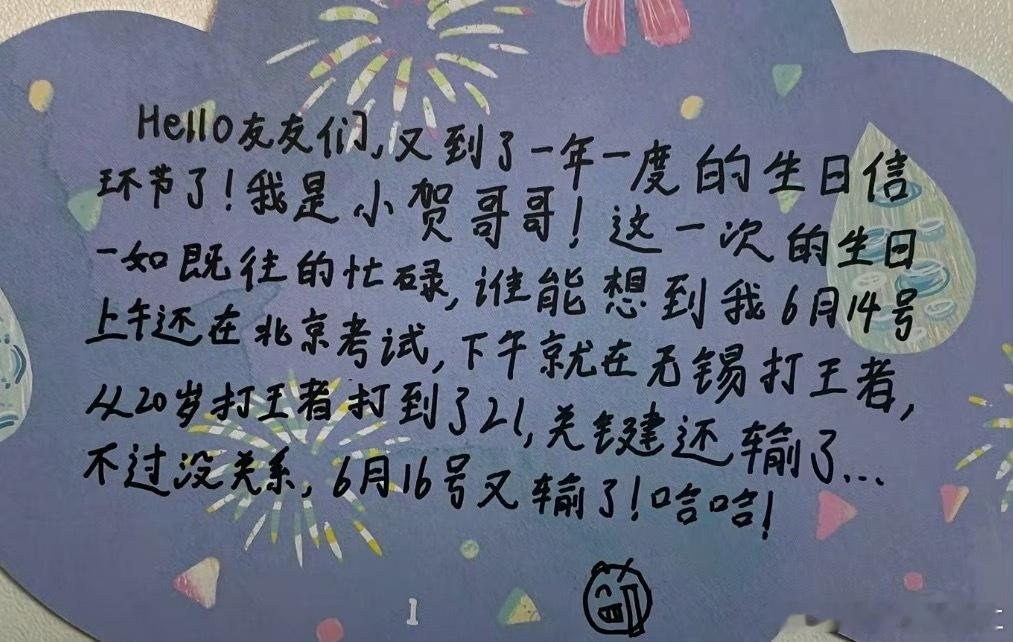 Hello友友们,又到了一年一度的生日信
环节了!我是小贺哥哥!这一次的生日
一如既往的忙碌,谁能想到我6月14号
上午还在北京考试,下午就在无锡打王者,
从20岁打王者打到了21,关键还输了...
不过没关系,6月16号又输了!哈哈!
1